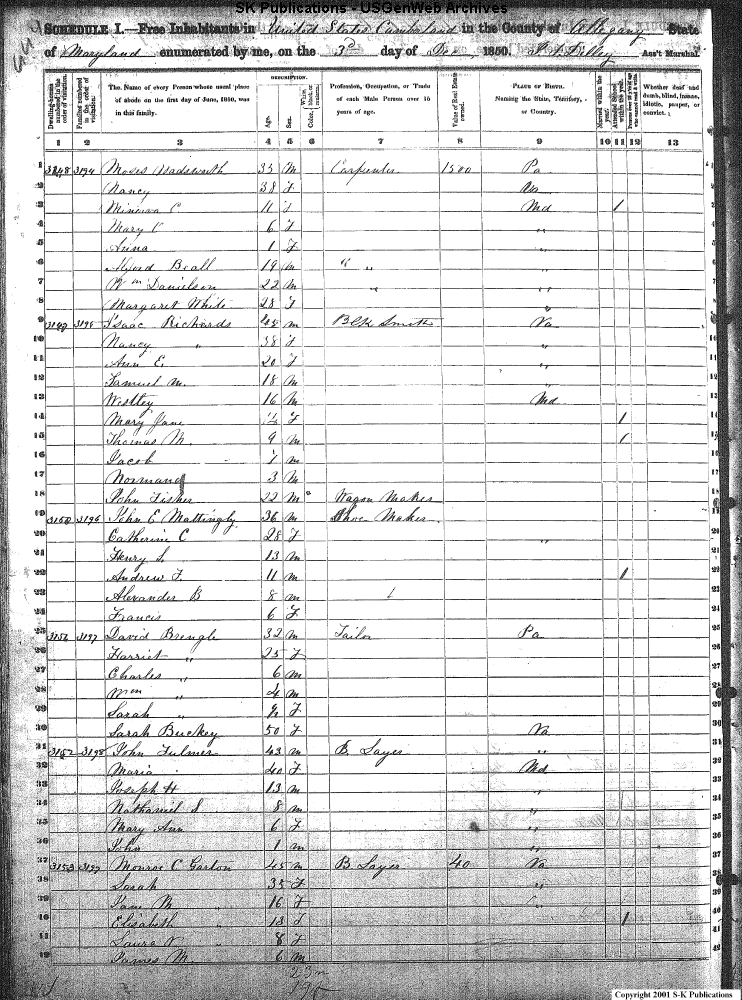 SK Publications - USGenWeb Archives
SCHEDULE I.—Free Inhabitants in United States Cumberland in the County of Allegany State
of Maryland enumerated by me, on the 3d day of Dec 1850. Ass't Marshal.
Dwelling-houses numbered in the order of visitation. Families numbered in the order of visitation. The Name of every Person whose usual place of abode on the first day of June, 1850, was in this family. DESCRIPTION. Age. Sex. Color, White, black, or mulatto. Profession, Occupation, or Trade of each Male Person over 15 years of age. Value of Real Estate owned. PLACE OF BIRTH. Naming the State, Territory, or Country. Married within the year. Attended School within the year. Whether deaf and dumb, blind, insane, idiotic, pauper, or convict.
1 2 3 4 5 6 7 8 9 10 11 12 13
1 3148 3194 Moses Wadsworth 35 M Carpenter 1500 Pa
2 Nancy 38 F Va
3 Minerva C 11 F Md /
4 Mary V 6 F "
5 Anna 1 F "
6 Alfred Beall 19 m " " "
7 Wm Danielson 22 M " "
8 Margaret White 28 F "
9 3149 3195 Isaac Richards 48 m Blk Smith Va
10 Nancy " 38 F "
11 Ann E. 20 F "
12 Samuel m. 18 M "
13 Westley 16 M Md
14 Mary Jane F /
15 Thomas M 9 m /
16 Jacob 7 m
17 Normand 3 M
18 John Fisher 22 M Wagon Maker
19 3150 3196 John E Mattingly 36 m Shoe Maker
20 Catherine C 28 F "
21 Henry S. 13 m
22 Andrew F. 11 m /
23 Alexander B 8 m
24 Francis 6 F
25 3151 3197 David Brengle 32 M Tailor Pa
26 Harriet " 25 F
27 Charles " 6 m
28 Wm " 4 m
29 Sarah " F
30 Sarah Buckey 50 F Va
31 3152 3198 John Fulmer 43 m B. Layer "
32 Maria 40 F Md
33 Joseph H 13 m "
34 Nathaniel S 8 m "
35 Mary Ann 6 F "
36 John 1 m "
37 3153 3199 Monroe C Garlon 45 m B Layer 40 Va
38 Sarah 35 F "
39 Jane M " 16 F "
40 Elisabeth " 13 F /
41 Laura V " 8 F
42 James M 6 M
23 m
Copyright 2001 S-K Publications